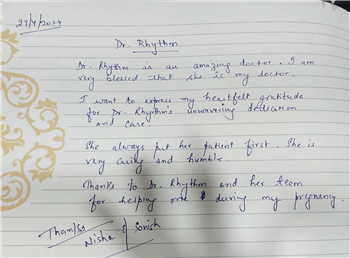 29/4/2024
Dr. Rhythm
Dr. Rhythm is an amazing doctor. I am
very blessed that she is my doctor.
I want to express my heartfelt gratitude
for Dr. Rhythm's unwavering dedication
and care.
She always put her patient first. She is
very caring and humble.
Thanks to Dr. Rhythm and her team
for helping me during my pregnancy.
Thanks
Nisha &